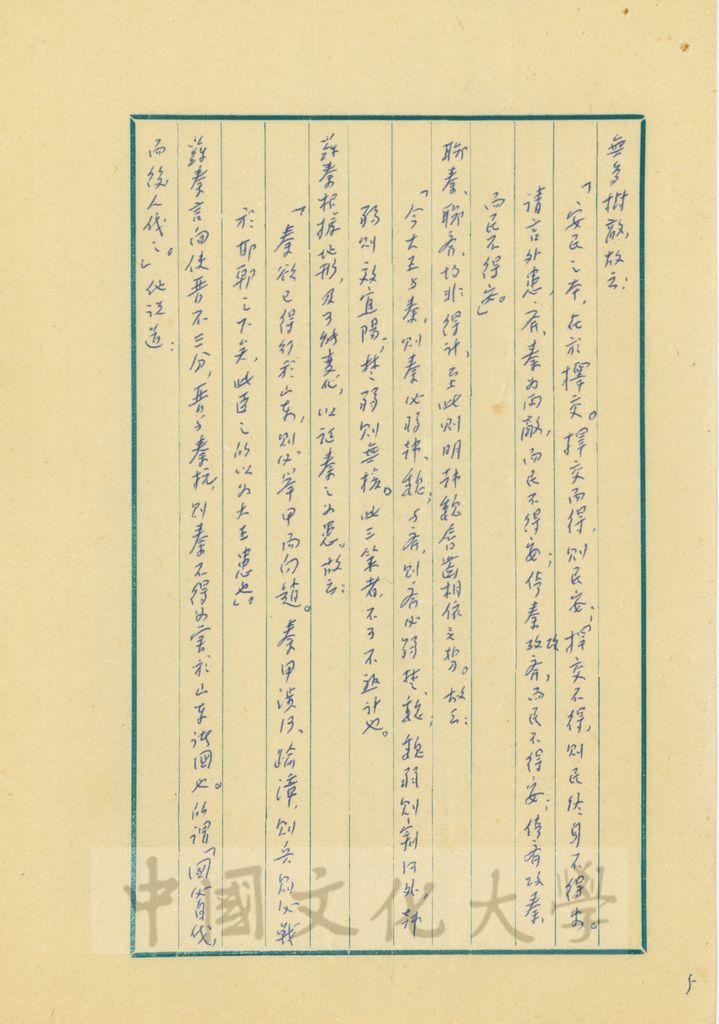 無多樹敵，故云：
「安民之本，在於擇交。擇交而得，則民安；擇交不得，則民終身不得安。
請言外患，齊、秦為兩敵，而民不得安；倚秦攻齊，而民不得安；倚齊攻秦，
而民不得安。」
聯秦、聯齊，均非得計，至此則明韓魏唇齒相依之勢。故云：
「今大王與秦，則秦必弱韓、魏；與齊，則齊必弱楚、魏；魏弱則割河外，韓
弱則效宜陽，楚弱則無援。此三策者，不可不熟計也。」
蘇秦根據地形，及可能變化，以証秦之為患。故云：
「秦欲已得行於山東，則必舉甲而向趙。秦甲渡河、踰漳，則兵則必戰
於邯鄲之下矣，此臣之所以為大王患也。」
蘇秦言向使晉不三分，晉與秦抗，則秦不得為害於山東諸國也。所謂「國必自伐，
而後人伐之。」他說道：
中國文化大學
5